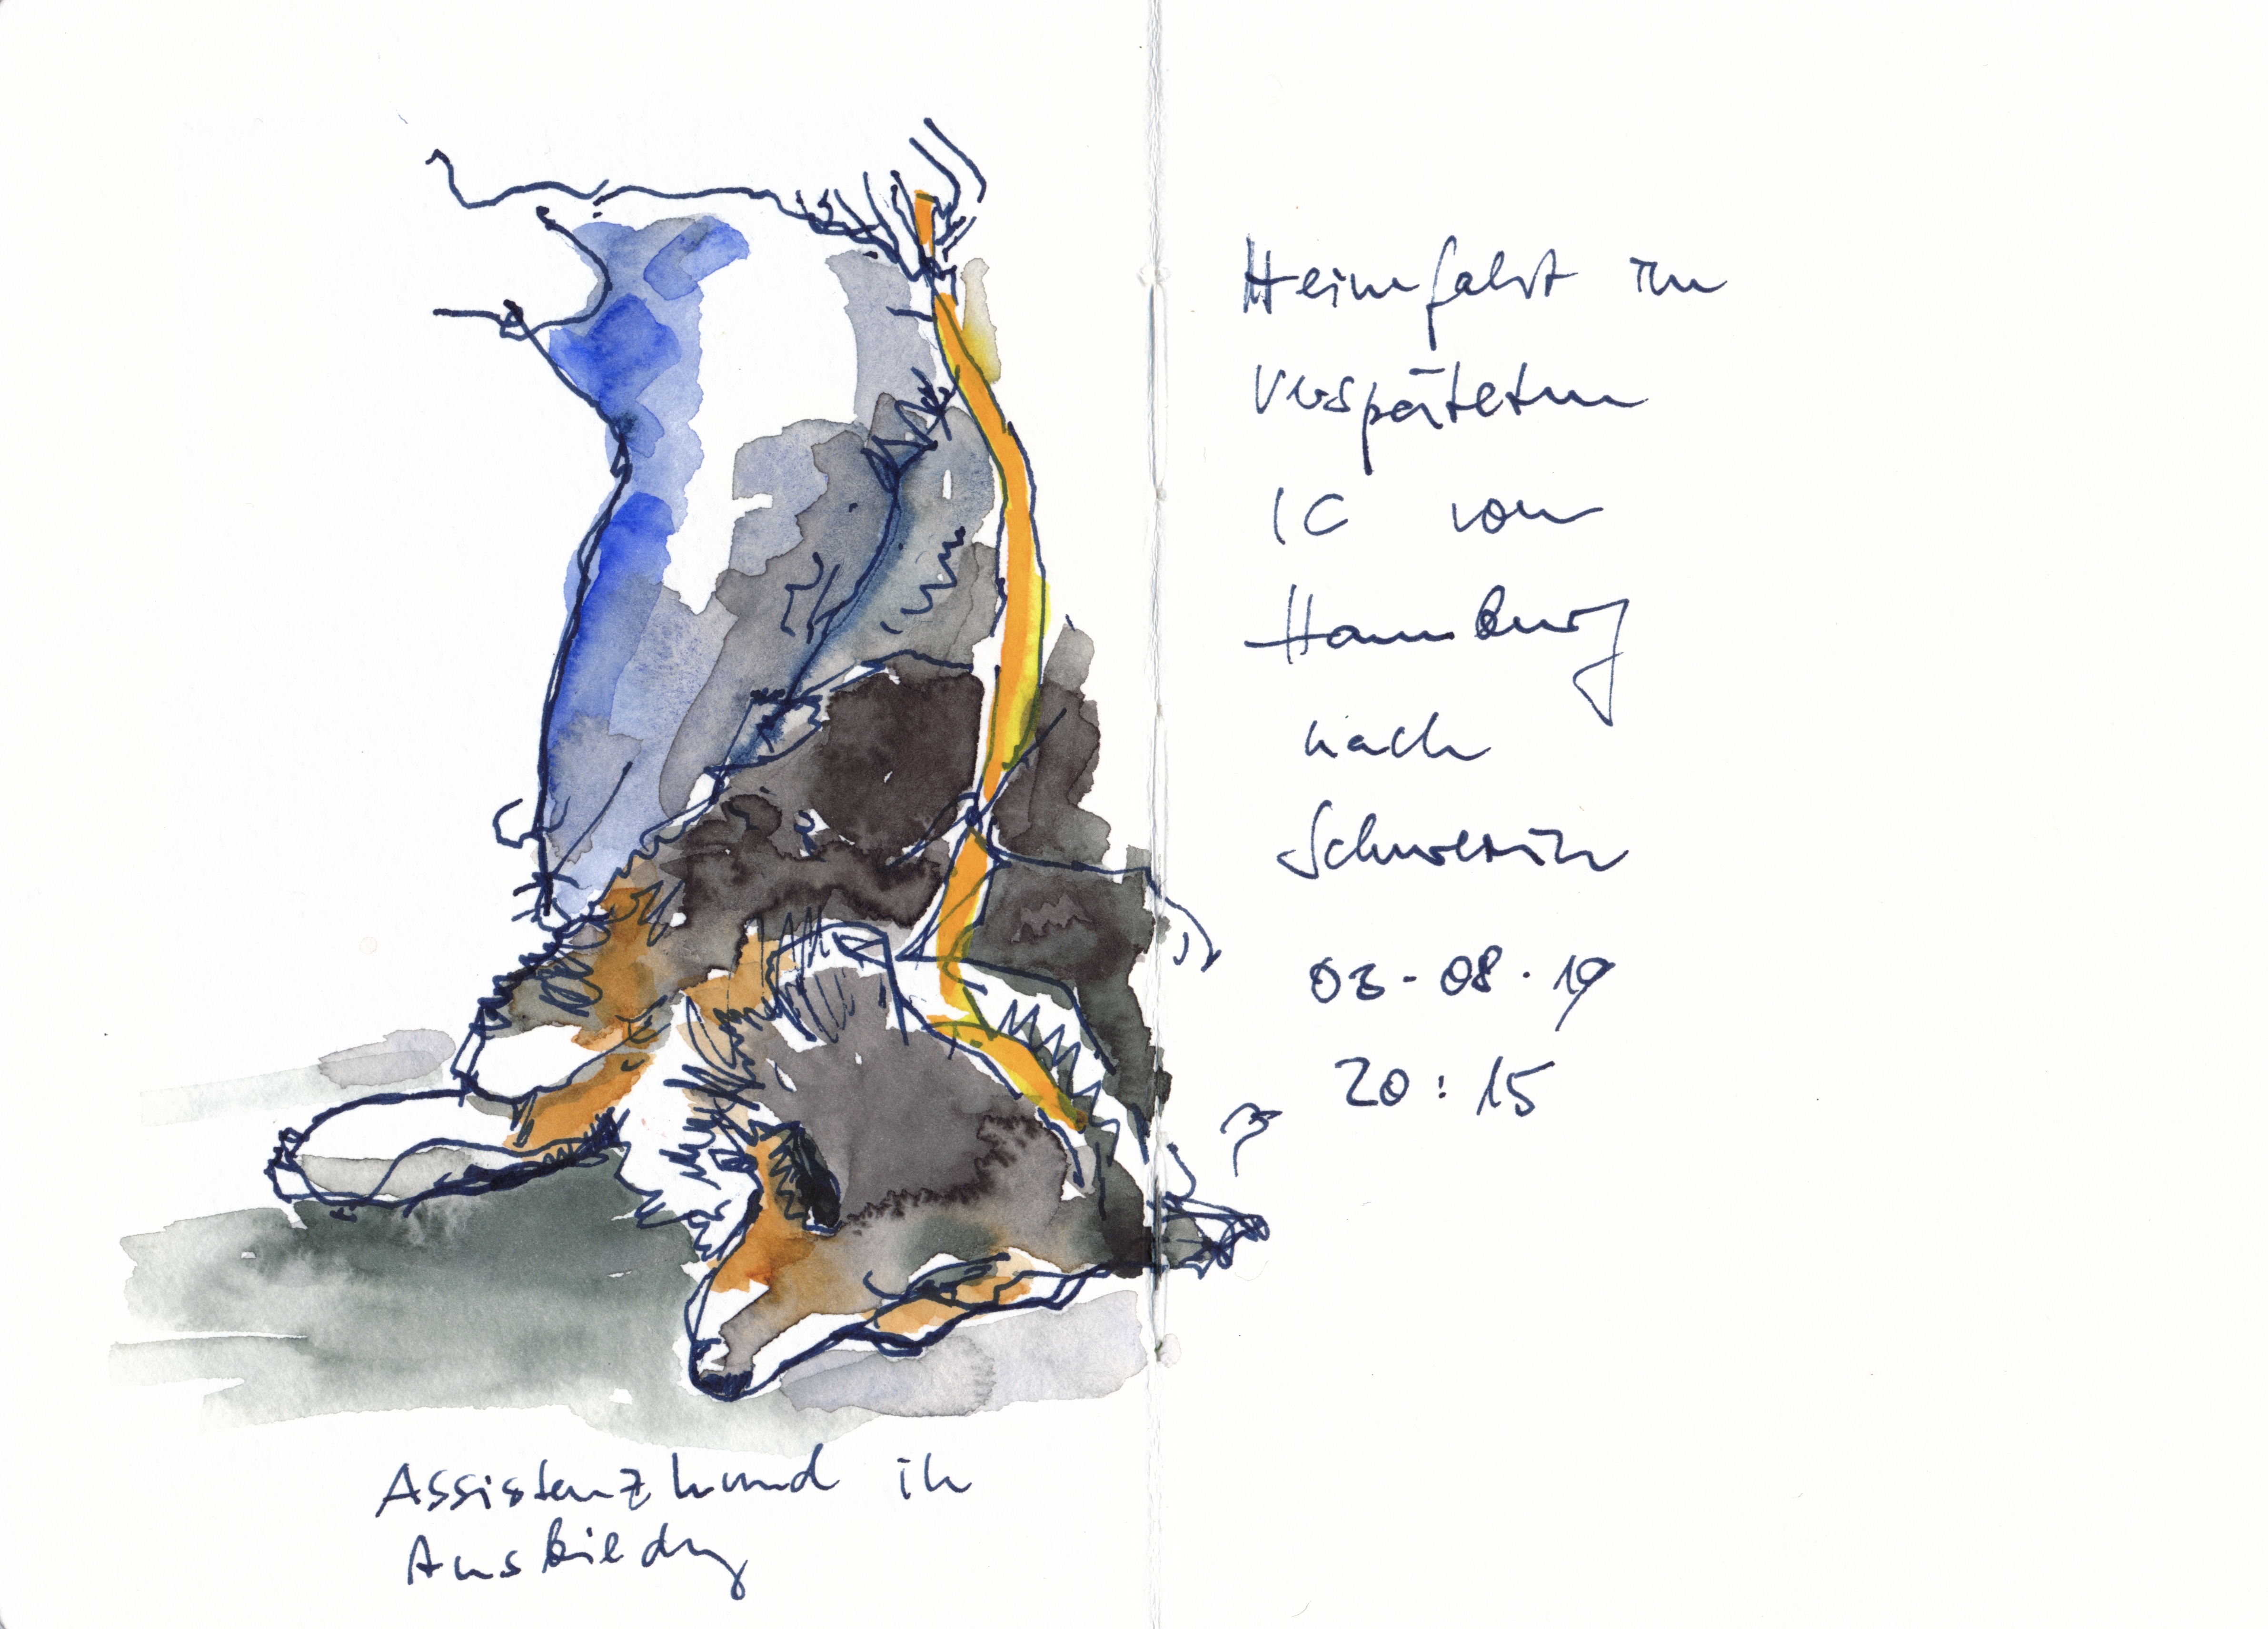 Assistenzhund in
Ausbildung
Heimfahrt im
verspäteten
IC von
Hamburg
nach
Schwerin
03.08.19
20:15